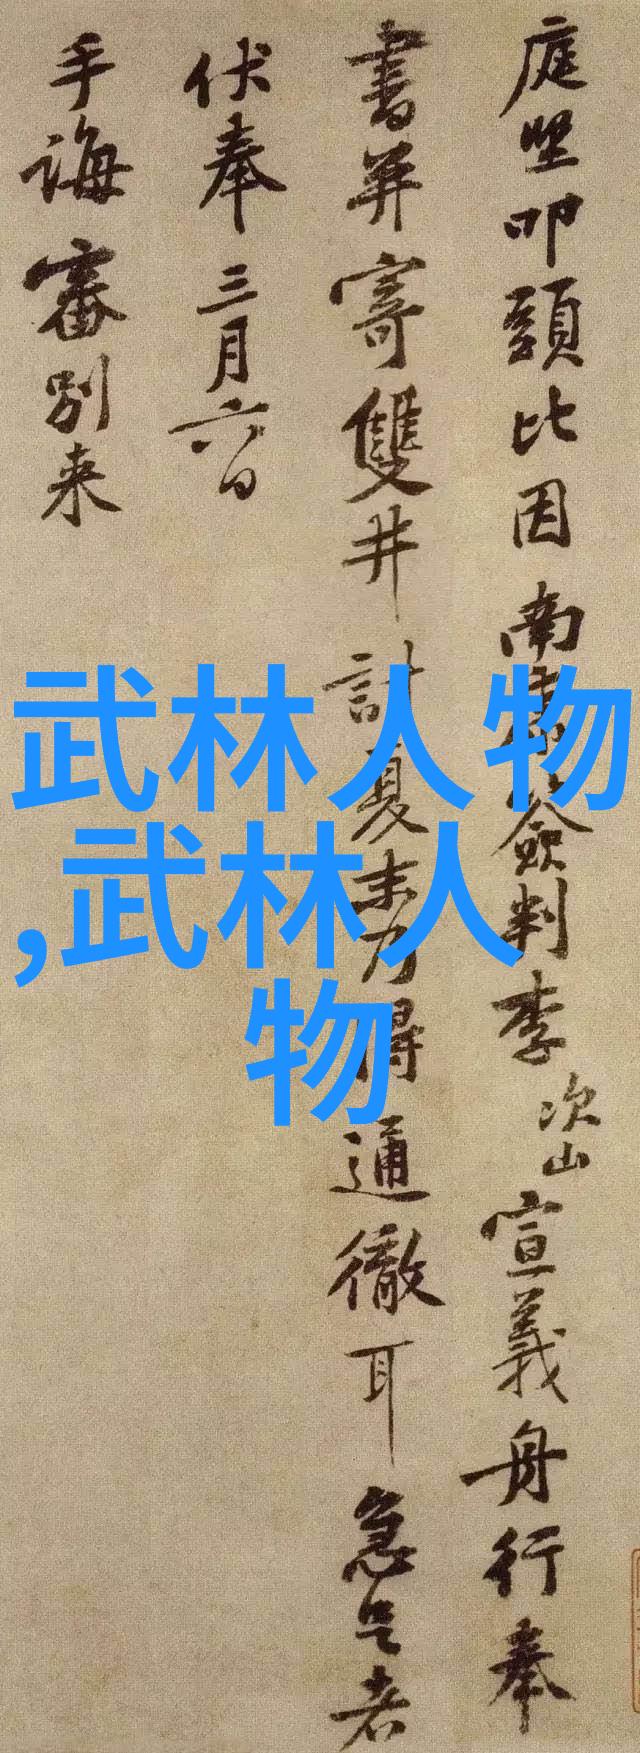 庭堅叩頭比因南康簽判李次山宣義舟行奉
書并寄雙井計夏末乃得通徹耳急足者
伏奉三月六日
手誨審別來
武林人物
,武林人
物